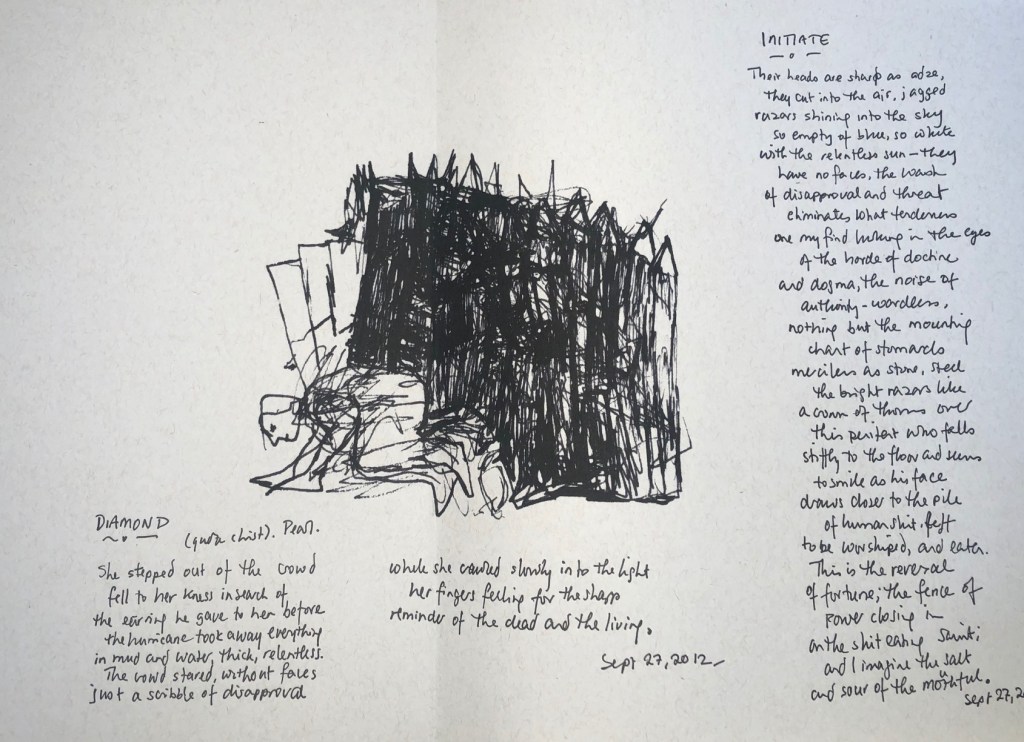 DIAMOND
(quora christ). Pearl.
She stepped out of the crowd
fell to her knees in search of
the earring he gave to her before
the hurricane took away everything
in mud and water, thick, relentless.
The crowd stared, without faces
just a scribble of disapproval
while she crawled slowly into the light
her fingers feeling for the sharp
reminder of the dead and the living.
Sept 27, 2012
INITIATE
Their heads are sharp as adze,
they cut into the air, jagged
razors shining into the sky
so empty of blue, so white
with the relentless sun - they
have no faces, the wash
of disapproval and threat
eliminates what tenderness
one may find lurking in the eyes
of the horde of doctrine
and dogma, the noise of
authority - wordless,
nothing but the mounting
chant of stomachs
merciless as stone, steel
the bright razors like
a crown of thorns over
this penitent who falls
stiffly to the floor and seems
to smile as his face
draws closer to the pile
of human shit, left
to be worshiped, and eaten.
This is the reversal
of fortune; the fence of
power closing in
on the shit eating saint;
and I imagine the salt
and sour of the mouthful.
Sept 27, 2